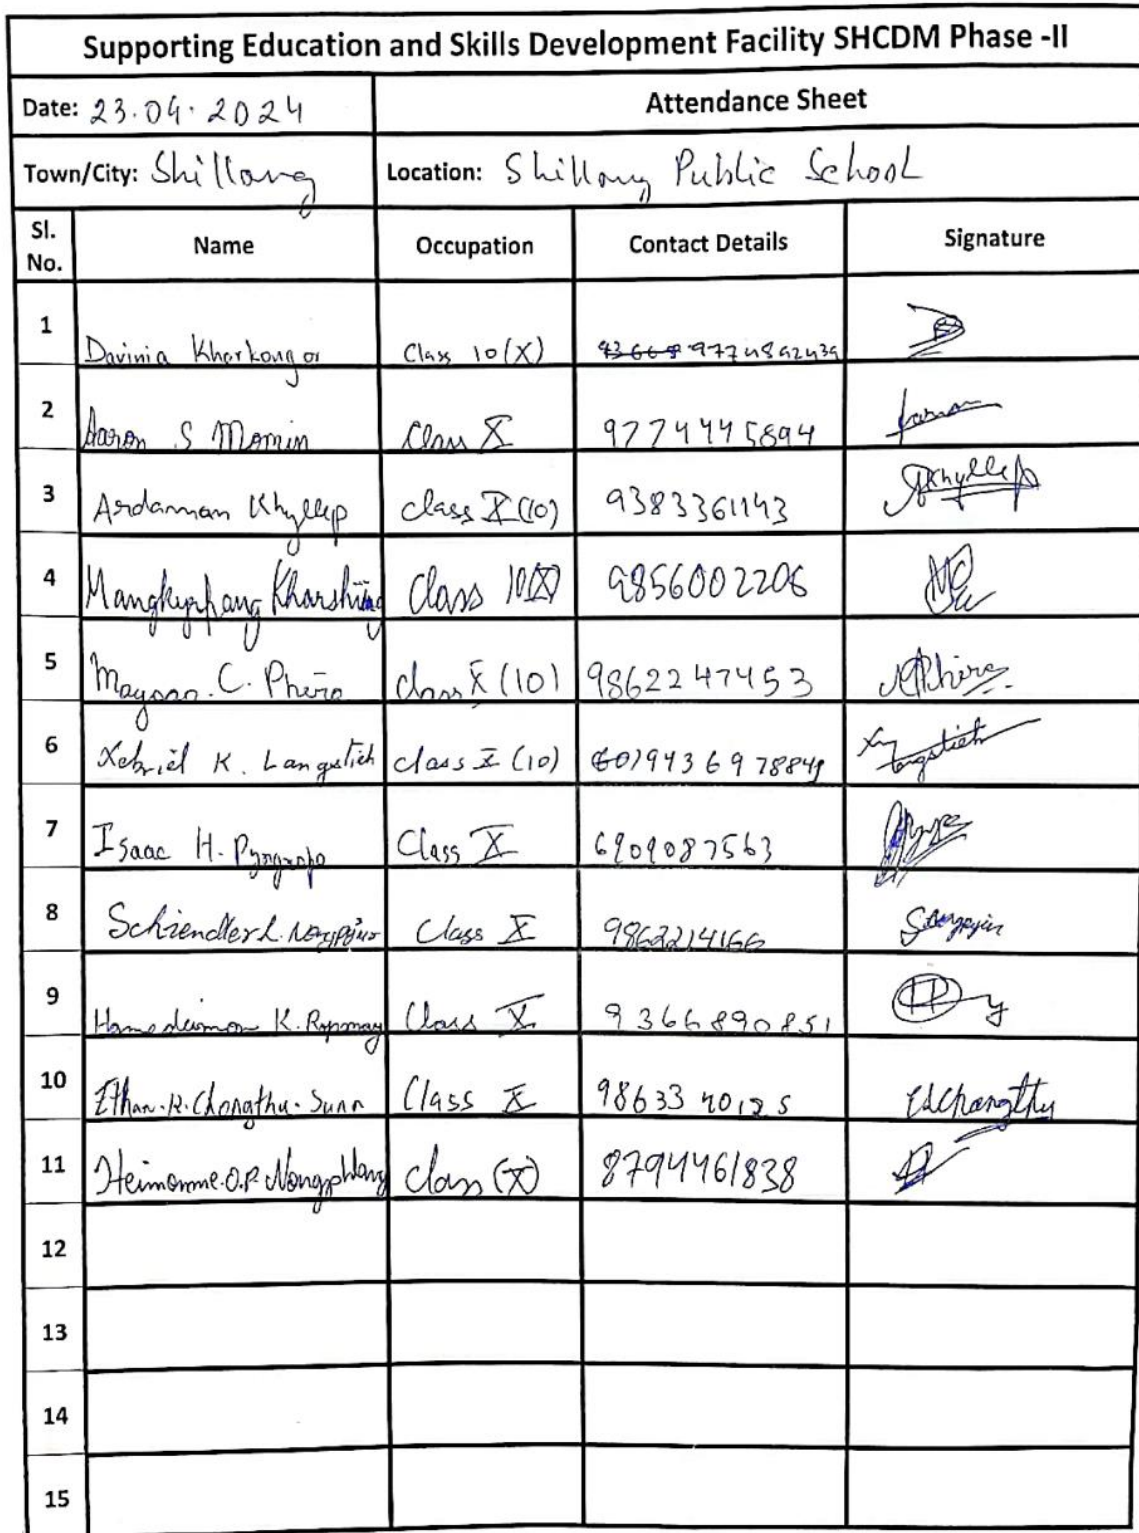 Supporting Education and Skills Development Facility SHCDM Phase -II
Date: 23.04.2024 Attendance Sheet
Town/City: Shillong Location: Shillong Public School
Sl. No. Name Occupation Contact Details Signature
1 Davinia Kharkongor Class 10(X) 9774892439
2 Aaron S Momin Class X 9774445894
3 Ardaman Khyllep class X (10) 9383361143 Khyllep
4 Mangkyrpang Kharshiing Class 10(X) 9856002206
5 C. Phira class X (10) 9862247453 Phira
6 Xebriel K. Langstieh class X (10) 9436978849 Langstieh
7 Isaac H. Pyngrope Class X 6909087563
8 Schiendler L. Nongpiur Class X 9862214166
9 K. Rapmay Class X 9366890851
10 Ethan.R.Chongthu.Sunn Class X 9863340125 Chongthu
11 Heimonme.O.P. Nongphlang class (X) 8794461838
12
13
14
15